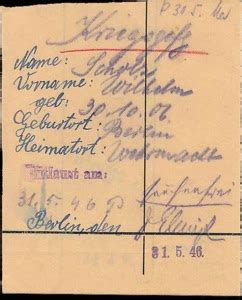 P. 30.5.
Kriegsgef.
Name: Scholz
Vorname: Wilhelm
geb: 30.10.06
Geburtort: Berlin
Heimatort: Wehrmacht
Entlaust am:
31.5.46 seuchenfrei
Berlin, den
31.5.46.